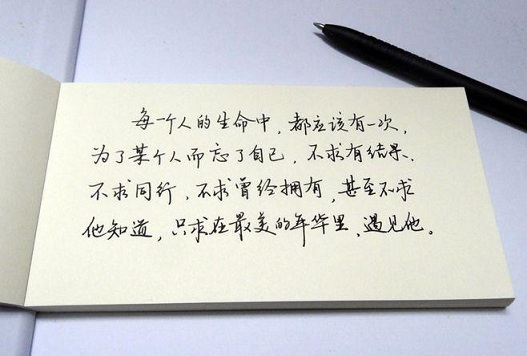 每一个人的生命中，都应该有一次，
为了某个人而忘了自己，不求有结果、
不求同行，不求曾经拥有，甚至不求
他知道，只求在最美的年华里、遇见他。